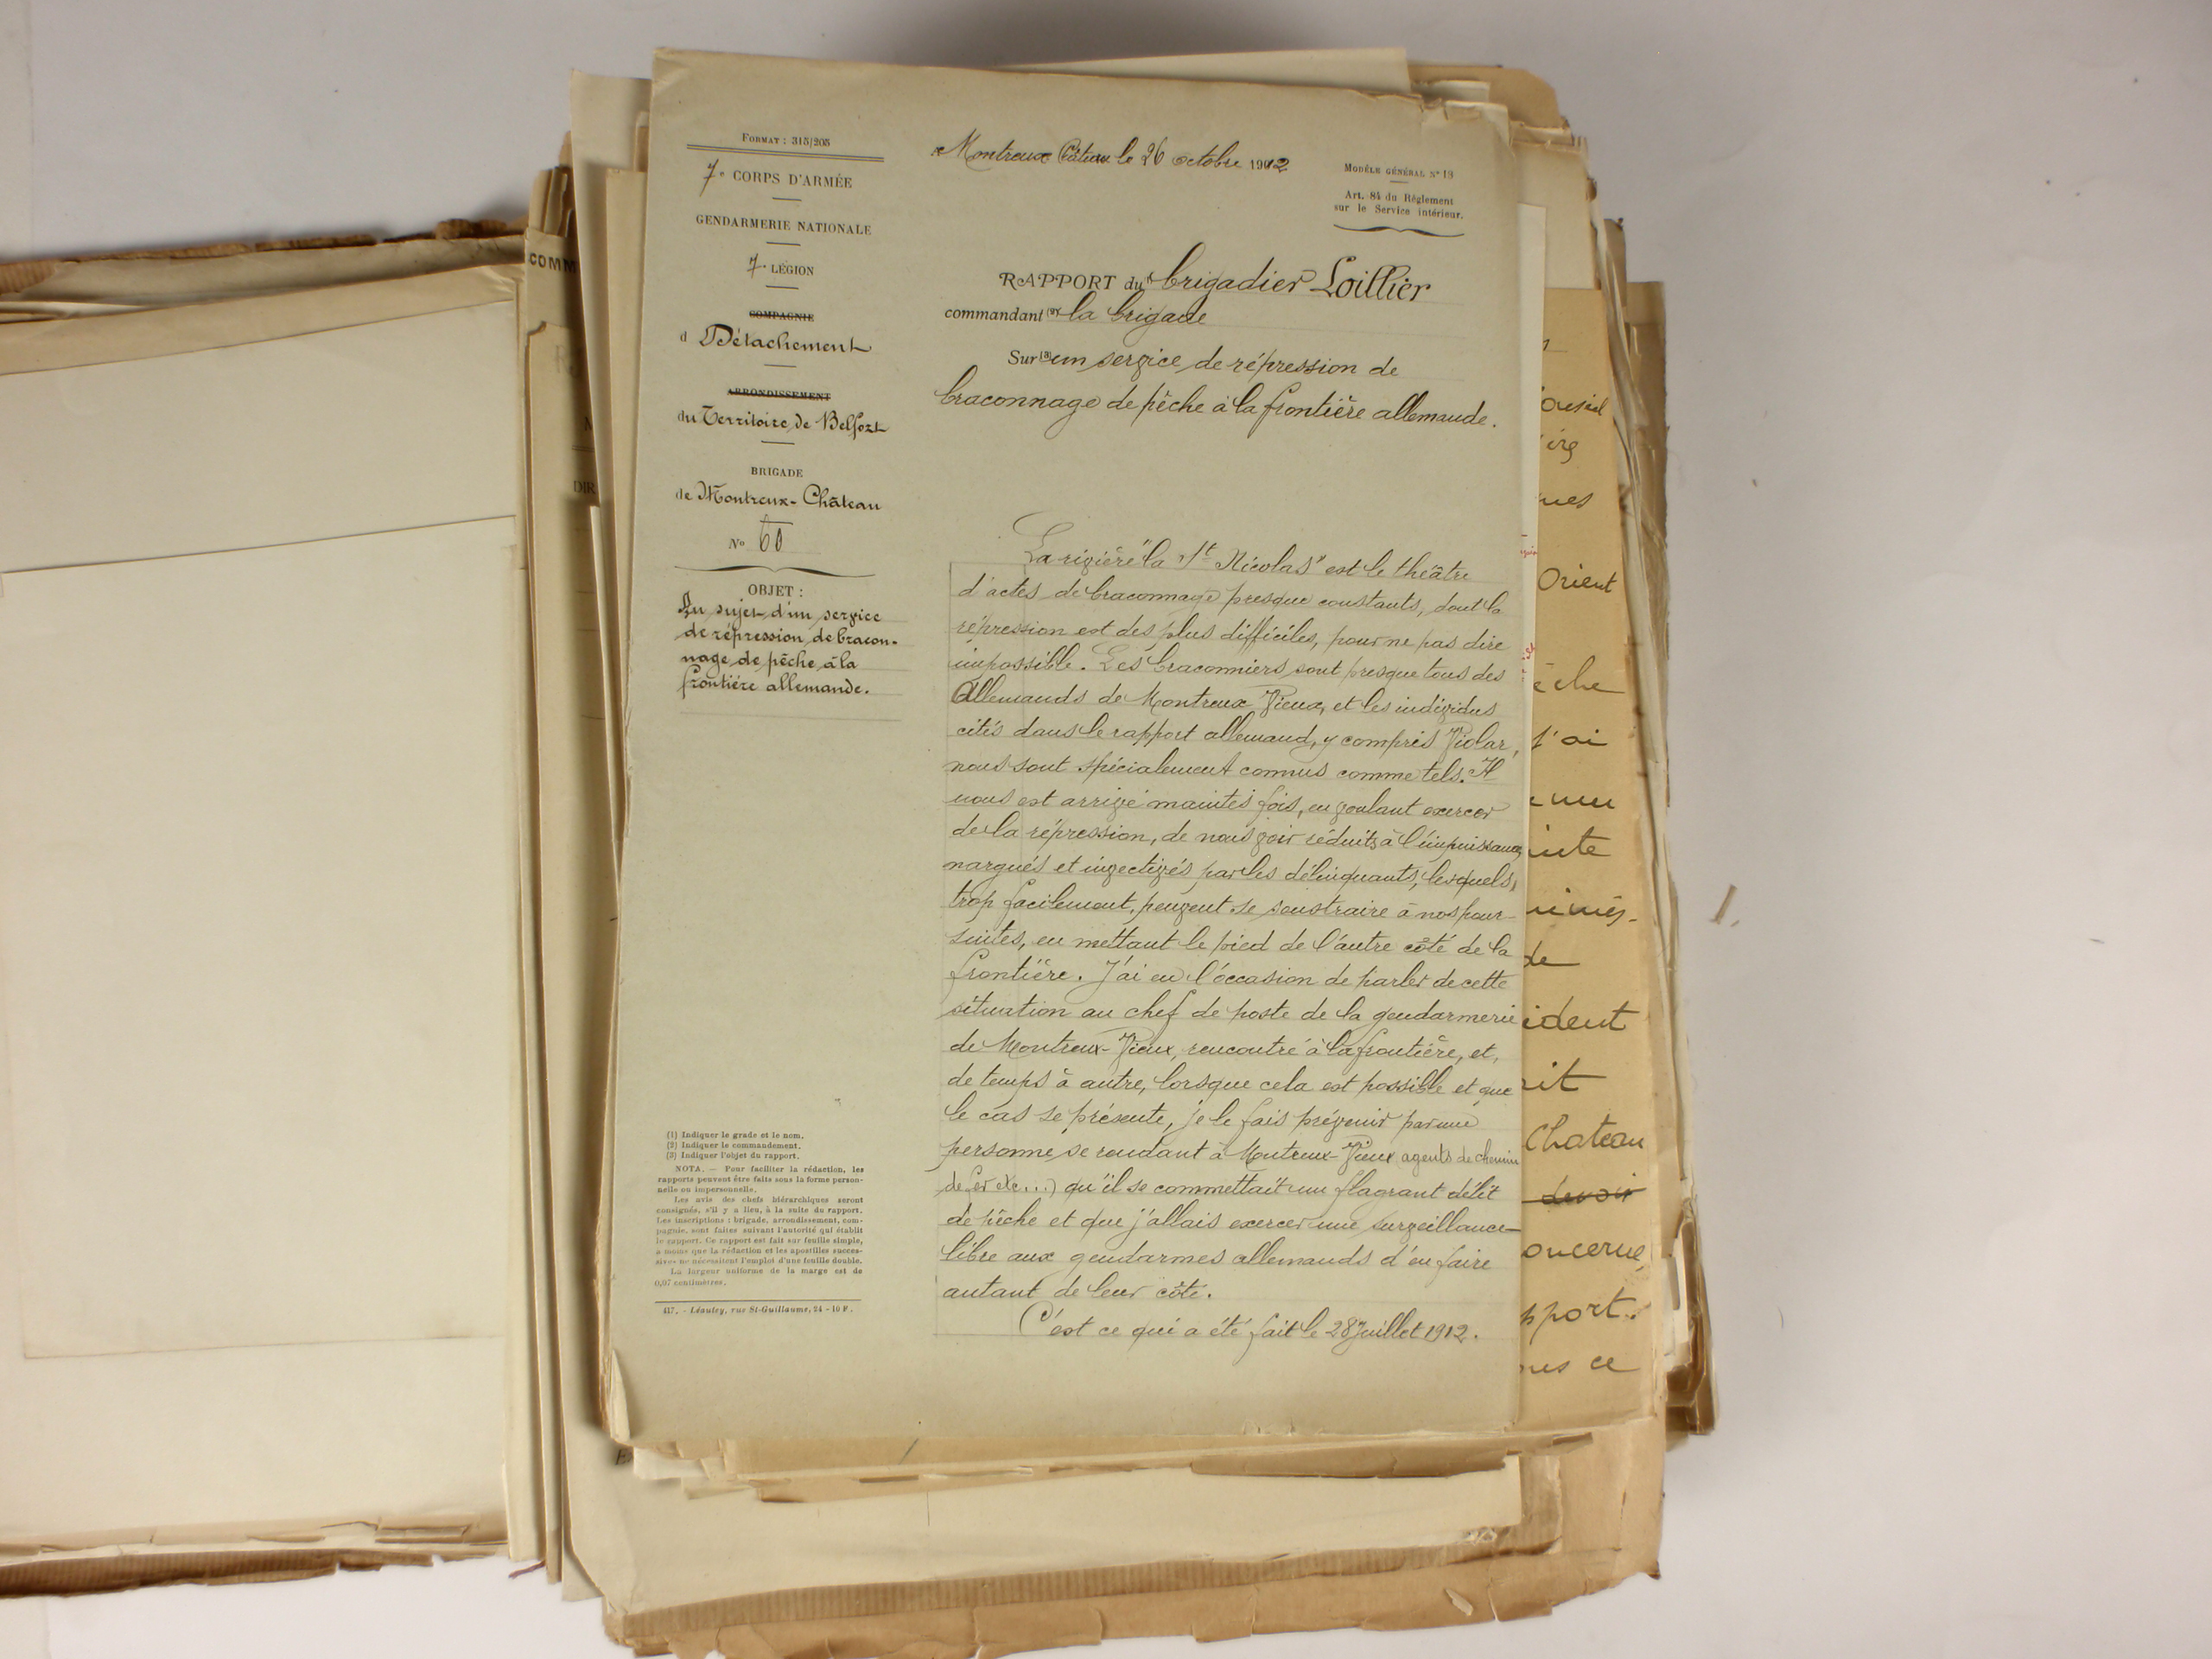 FORMAT : 315/205
7e CORPS D'ARMÉE
GENDARMERIE NATIONALE
7e LÉGION
COMPAGNIE
d Détachement
ARRONDISSEMENT
du Territoire de Belfort
BRIGADE
de Montreux-Château
No 60
OBJET :
Au sujet d'un service
de répression de bracon-
nage de pêche à la
frontière allemande.
(1) Indiquer le grade et le nom.
(2) Indiquer le commandement.
(3) Indiquer l'objet du rapport.
NOTA. — Pour faciliter la rédaction, les
rapports peuvent être faits sous la forme person-
nelle ou impersonnelle.
Les avis des chefs hiérarchiques seront
consignés, s'il y a lieu, à la suite du rapport.
Les inscriptions : brigade, arrondissement, com-
pagnie, sont faites suivant l'autorité qui établit
le rapport. Ce rapport est fait sur feuille simple,
à moins que la rédaction et les apostilles succes-
sives ne nécessitent l'emploi d'une feuille double.
La largeur uniforme de la marge est de
0,07 centimètres.
417. - Léautey, rue St-Guillaume, 24 - 10 F.
Montreux Château le 26 octobre 1912
MODÈLE GÉNÉRAL No 13
Art. 84 du Règlement
sur le Service intérieur.
RAPPORT du brigadier Loillier
commandant (2) la brigade
Sur (3) un service de répression de
braconnage de pêche à la frontière allemande.
La rivière "la St Nicolas" est le théâtre
d'actes de braconnage presque constants, dont la
répression est des plus difficiles, pour ne pas dire
impossible. Les braconniers sont presque tous des
Allemands de Montreux-Vieux, et les individus
cités dans le rapport allemand, y compris Violar,
nous sont spécialement connus comme tels. Il
nous est arrivé maintes fois, en voulant exercer
de la répression, de nous voir réduits à l'impuissance,
nargués et invectivés par les délinquants, lesquels,
trop facilement, peuvent se soustraire à nos pour-
suites, en mettant le pied de l'autre côté de la
frontière. J'ai eu l'occasion de parler de cette
situation au chef de poste de la gendarmerie
de Montreux-Vieux, rencontré à la frontière, et,
de temps à autre, lorsque cela est possible et que
le cas se présente, je le fais prévenir par une
personne se rendant à Montreux-Vieux agents de chemin
de fer etc...) qu'il se commettait un flagrant délit
de pêche et que j'allais exercer une surveillance-
libre aux gendarmes allemands d'en faire
autant de leur côté.
C'est ce qui a été fait le 28 Juillet 1912.
COMM
DIR
Orient
j'ai
de
Chateau
devoir